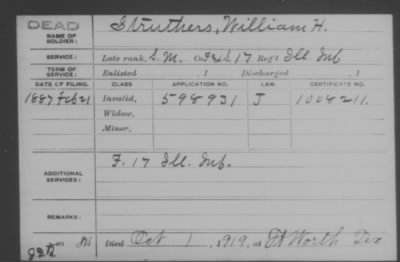 DEAD
NAME OF SOLDIER: Struthers, William H.
SERVICE: Late rank, S. M. Co. F & S, 17 Reg't Ill. Inf
TERM OF SERVICE: Enlisted , 1 Discharged , 1
DATE OF FILING. CLASS APPLICATION NO. LAW CERTIFICATE NO.
1887 Feb 21 Invalid, 598931 J 1008211.
Widow,
Minor,
ADDITIONAL SERVICES: F. 17 Ill. Inf.
REMARKS:
Died Oct 1, 1919, at Ft Worth Tex